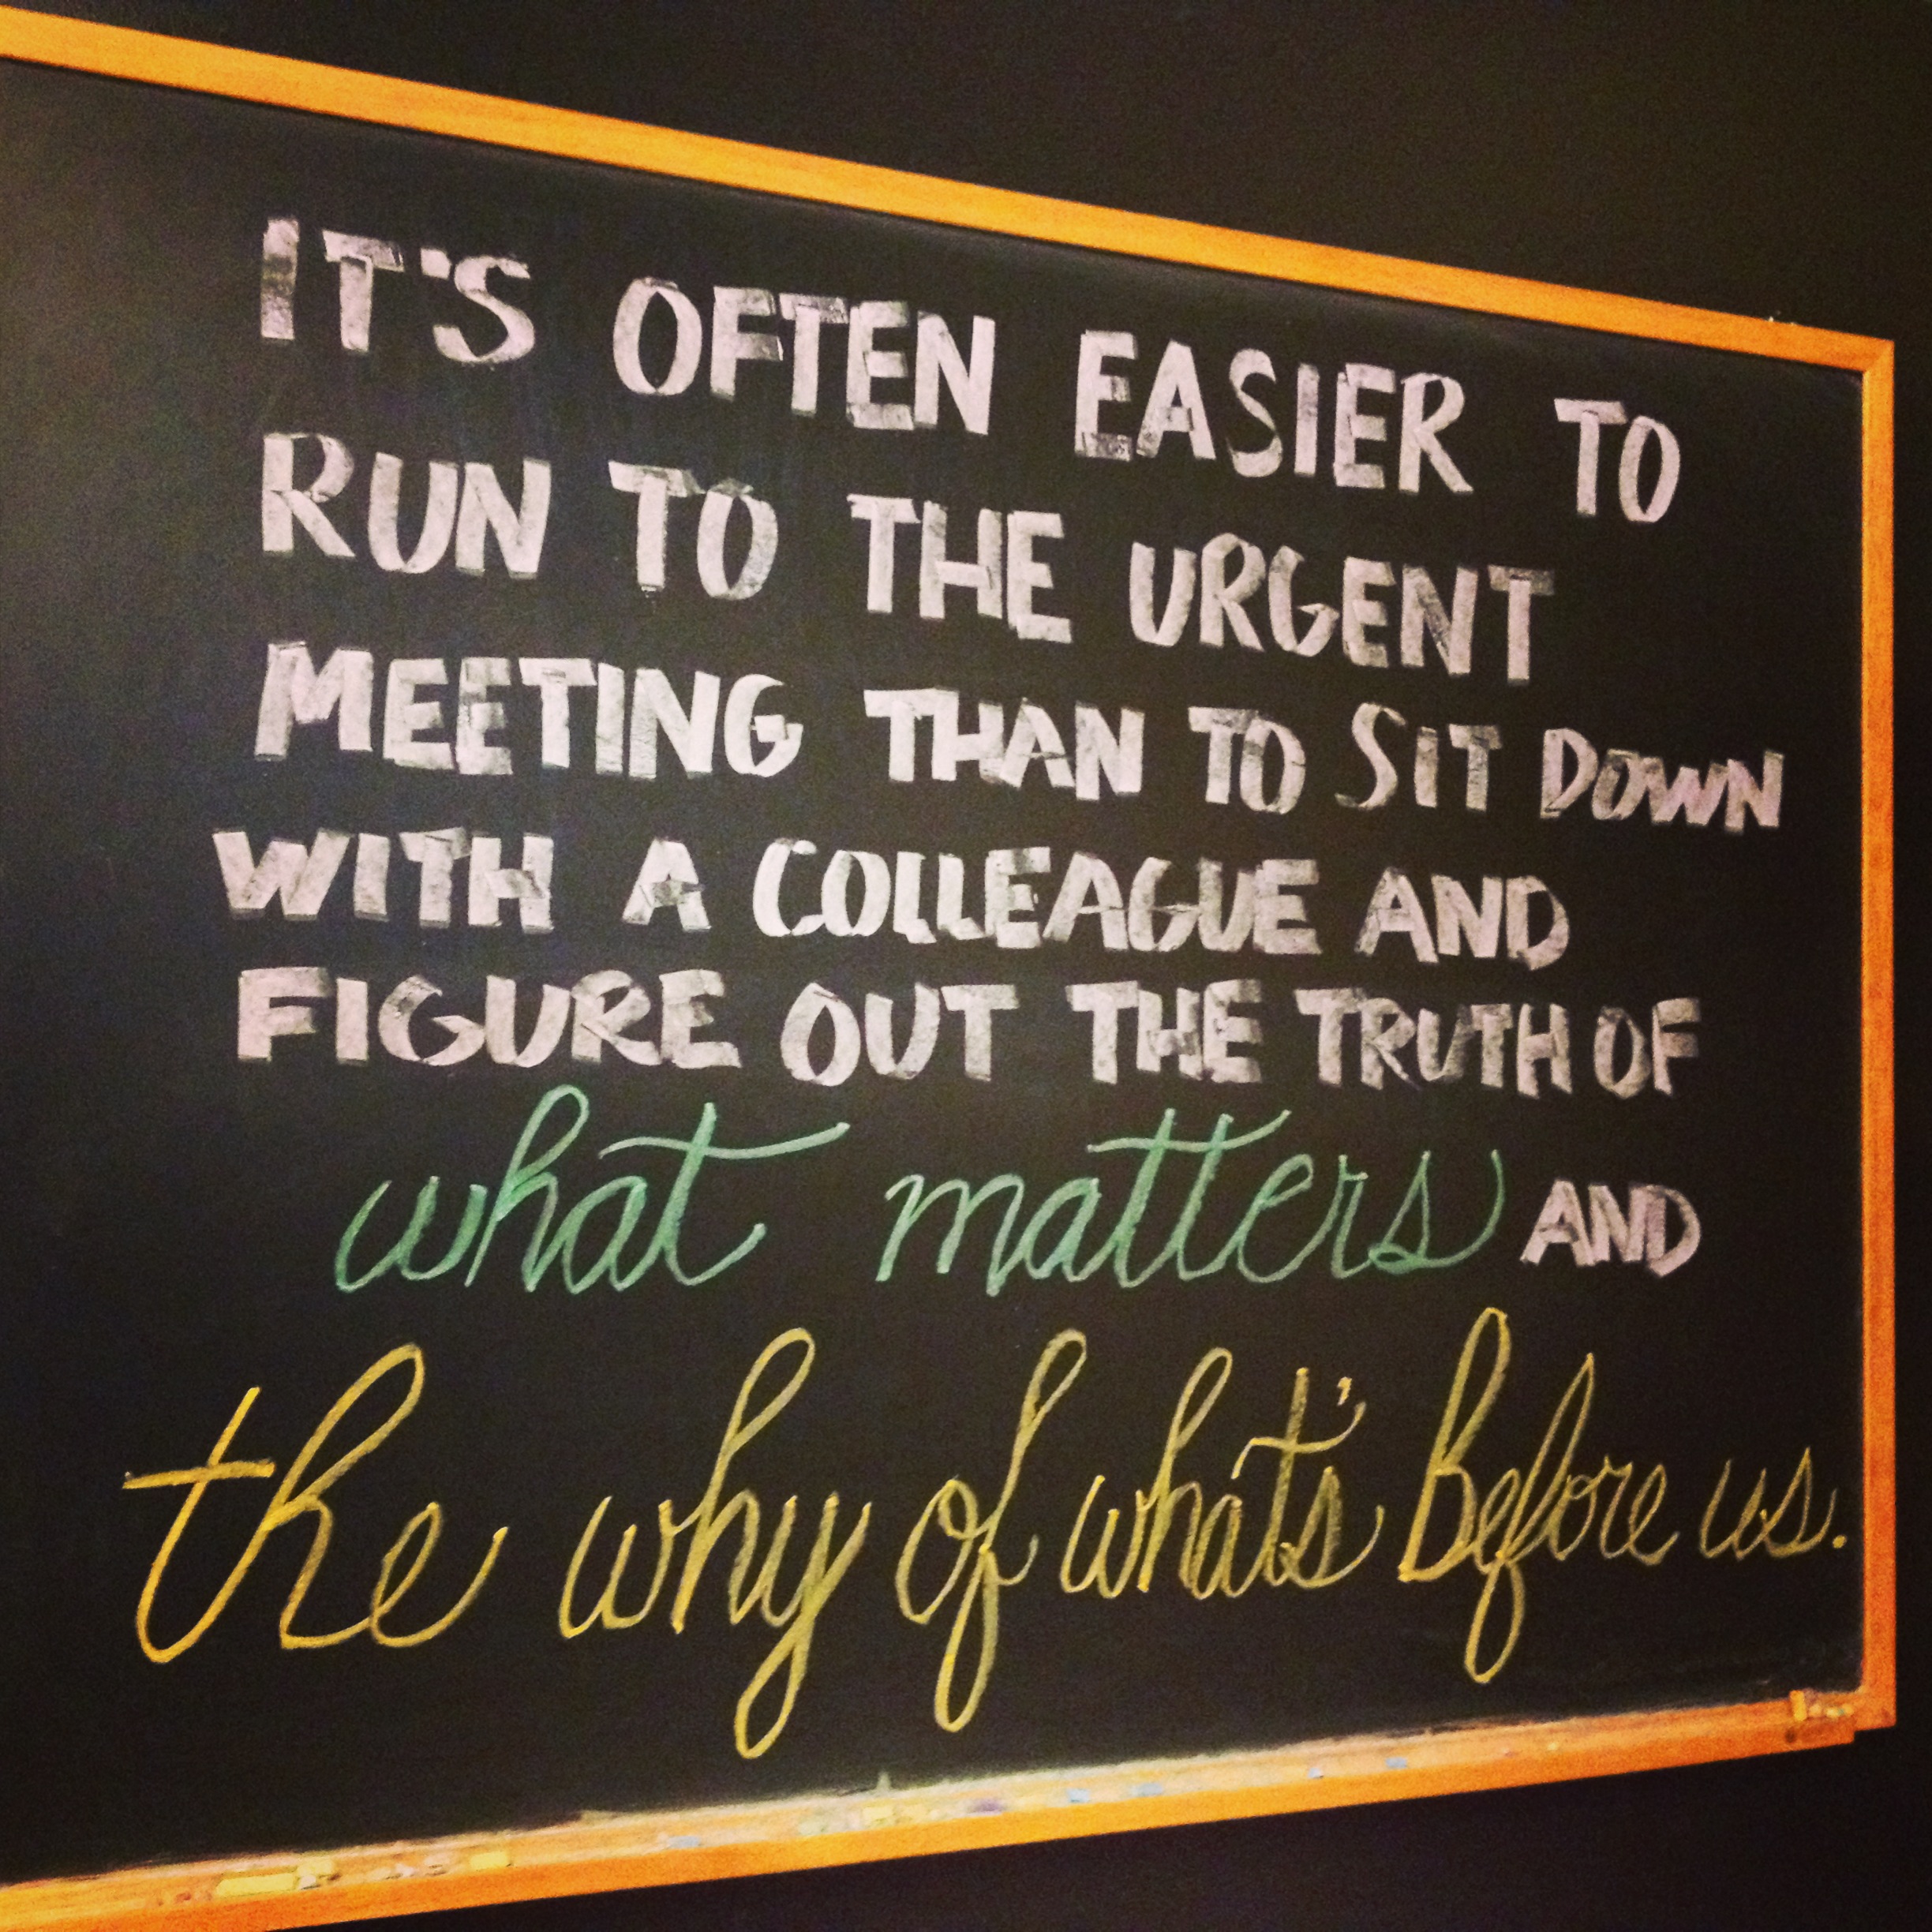 IT'S OFTEN EASIER TO
RUN TO THE URGENT
MEETING THAN TO SIT DOWN
WITH A COLLEAGUE AND
FIGURE OUT THE TRUTH OF
what matters AND
the why of what's before us.